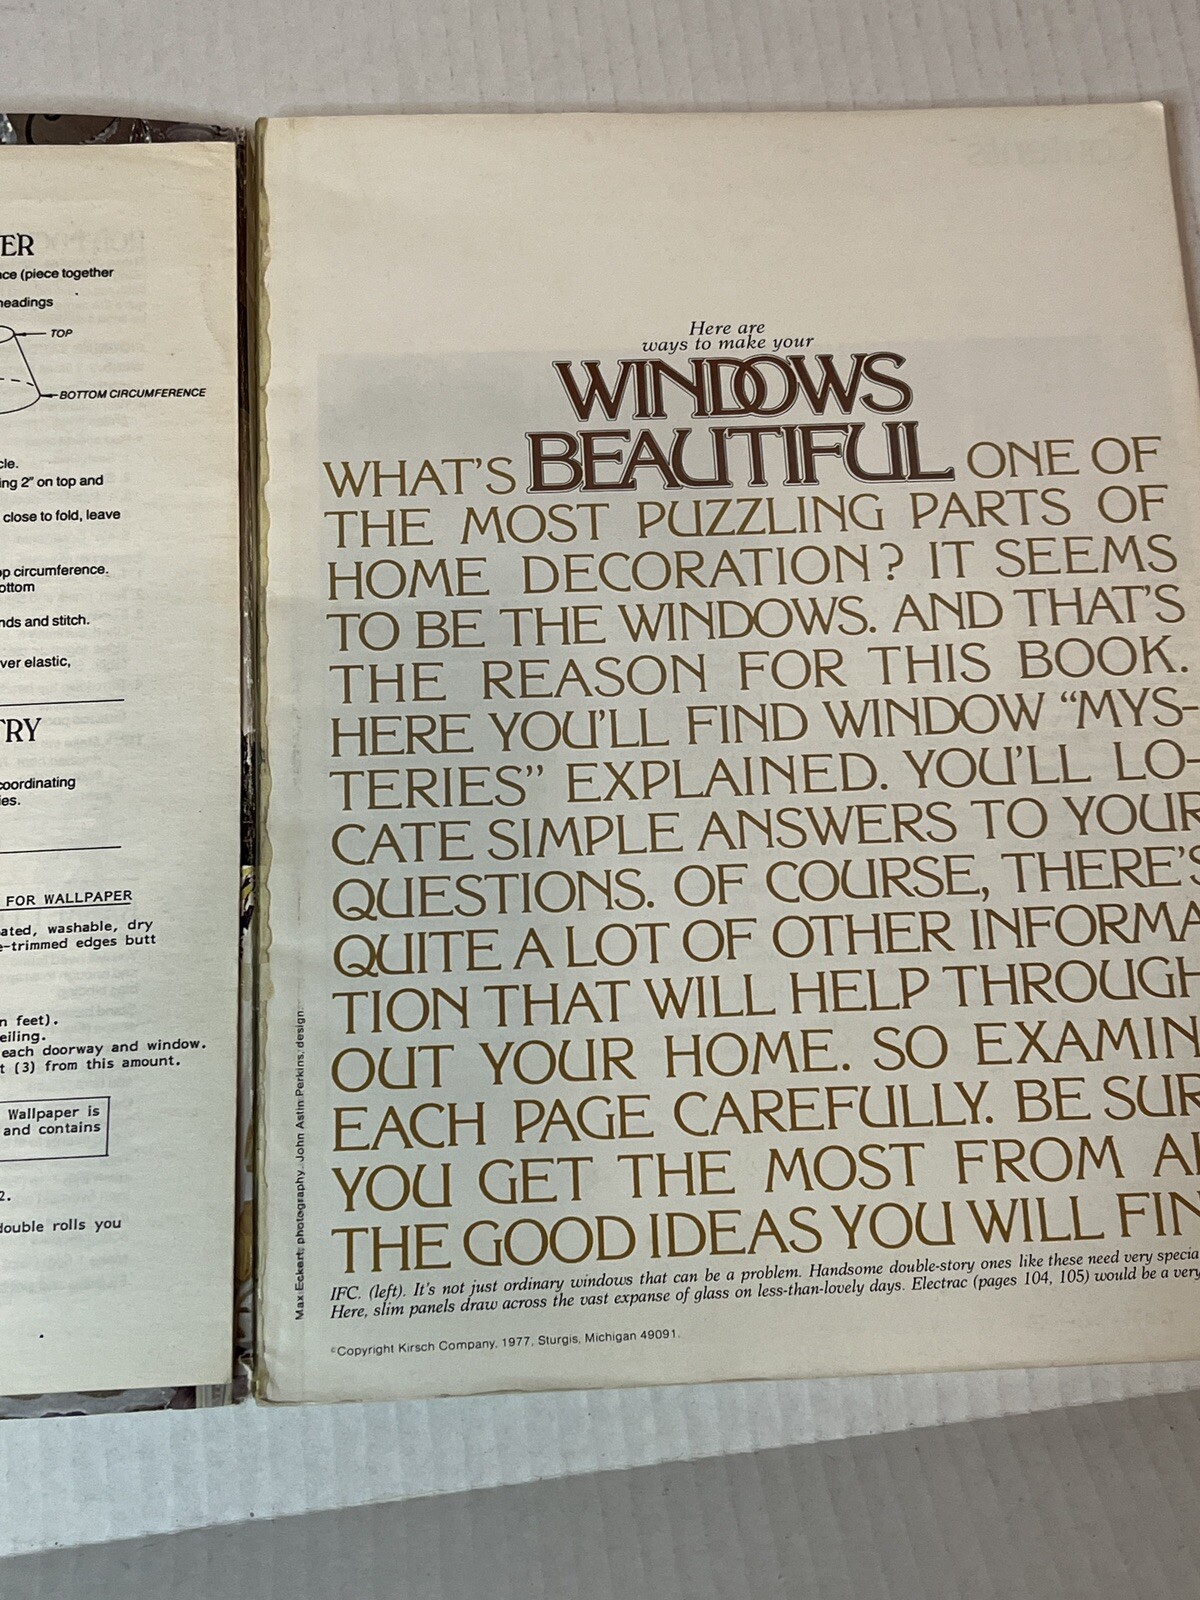 ER
ce (piece together
headings
TOP
BOTTOM CIRCUMFERENCE
cle.
ing 2" on top and
close to fold, leave
op circumference.
ottom
nds and stitch.
ver elastic,
TRY
coordinating
ies.
FOR WALLPAPER
ated, washable, dry
e-trimmed edges butt
n feet).
eiling.
each doorway and window.
t (3) from this amount.
Wallpaper is
and contains
2.
double rolls you
Contents
Here are
ways to make your
WINDOWS
BEAUTIFUL
WHAT'S ONE OF
THE MOST PUZZLING PARTS OF
HOME DECORATION? IT SEEMS
TO BE THE WINDOWS. AND THAT'S
THE REASON FOR THIS BOOK.
HERE YOU'LL FIND WINDOW "MYS-
TERIES" EXPLAINED. YOU'LL LO-
CATE SIMPLE ANSWERS TO YOUR
QUESTIONS. OF COURSE, THERE'S
QUITE A LOT OF OTHER INFORMA
TION THAT WILL HELP THROUGH
OUT YOUR HOME. SO EXAMIN
EACH PAGE CAREFULLY. BE SUR
YOU GET THE MOST FROM A
THE GOOD IDEAS YOU WILL FIN
IFC. (left). It's not just ordinary windows that can be a problem. Handsome double-story ones like these need very specia
Here, slim panels draw across the vast expanse of glass on less-than-lovely days. Electrac (pages 104, 105) would be a very
©Copyright Kirsch Company, 1977, Sturgis, Michigan 49091.
Max Eckert, photography. John Astin Perkins, design.